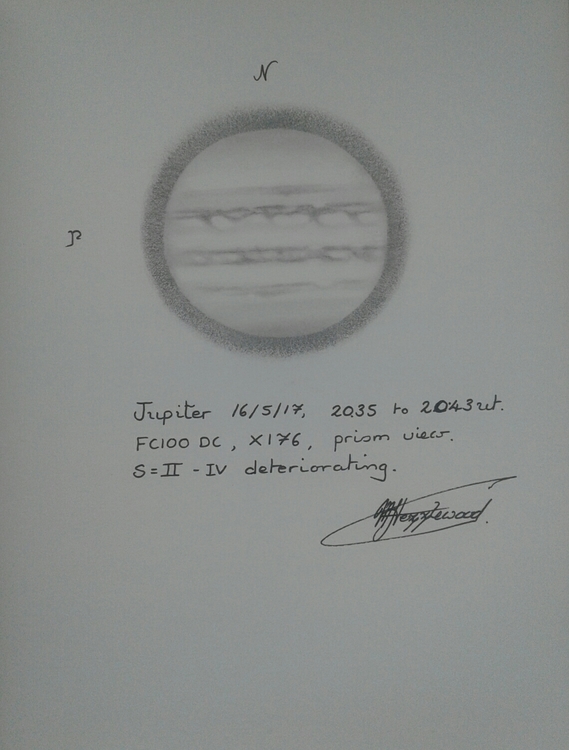 N
P
Jupiter 16/5/17, 2035 to 2043 ut.
FC100 DC, X176, prism view.
S=II - IV deteriorating.